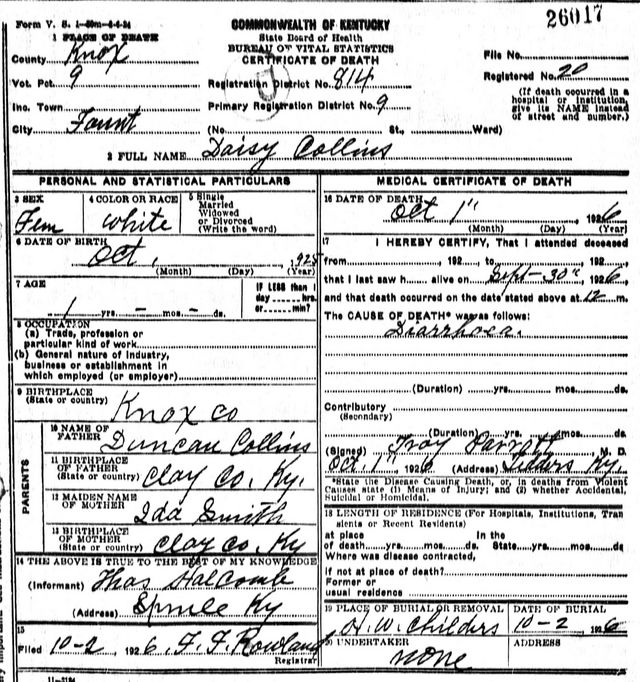 Form V. S. 1-50m-4-4-24
COMMONWEALTH OF KENTUCKY
26017
State Board of Health
BUREAU OF VITAL STATISTICS
CERTIFICATE OF DEATH
1 PLACE OF DEATH
County Knox
File No.
Vot. Pct. 9
Registration District No. 814
Registered No. 20
Inc. Town
Primary Registration District No. 9
(If death occurred in a hospital or institution, give its NAME instead of street and number.)
City Fount (No. St., Ward)
2 FULL NAME Daisy Collins
PERSONAL AND STATISTICAL PARTICULARS
3 SEX Fem
4 COLOR OR RACE White
5 Single Married Widowed or Divorced (Write the word)
6 DATE OF BIRTH
Oct, 1925
(Month) (Day) (Year)
7 AGE
1 yrs. — mos. — ds.
IF LESS than 1 day hrs. or min?
8 OCCUPATION
(a) Trade, profession or particular kind of work
(b) General nature of industry, business or establishment in which employed (or employer)
9 BIRTHPLACE
(State or country) Knox co
PARENTS
10 NAME OF FATHER Duncan Collins
11 BIRTHPLACE OF FATHER (State or country) Clay Co. Ky.
12 MAIDEN NAME OF MOTHER Ida Smith
13 BIRTHPLACE OF MOTHER (State or country) Clay Co. Ky
14 THE ABOVE IS TRUE TO THE BEST OF MY KNOWLEDGE
(Informant) Thos Halcomb
(Address) Sprule Ky
15
Filed 10-2, 1926 F. F. Rowland
Registrar
11-3124
MEDICAL CERTIFICATE OF DEATH
16 DATE OF DEATH
Oct 1", 1926
(Month) (Day) (Year)
17 I HEREBY CERTIFY, That I attended deceased
from, 192, to, 192,
that I last saw h alive on Sept-30", 1926,
and that death occurred on the date stated above at 12 m.
The CAUSE OF DEATH* was as follows:
Diarrhoea.
(Duration) yrs. mos. ds.
Contributory
(Secondary)
(Duration) yrs. mos. ds.
(Signed) Troy M. D.
Oct. 1", 1926 (Address) Ky.
*State the Disease Causing Death, or, in deaths from Violent Causes state (1) Means of Injury; and (2) whether Accidental, Suicidal or Homicidal.
18 LENGTH OF RESIDENCE (For Hospitals, Institutions, Transients or Recent Residents)
at place of death yrs. mos. ds. In the State yrs. mos. ds.
Where was disease contracted,
if not at place of death?
Former or usual residence
19 PLACE OF BURIAL OR REMOVAL
H. W. Childers
DATE OF BURIAL
10-2, 1926
20 UNDERTAKER
none
ADDRESS